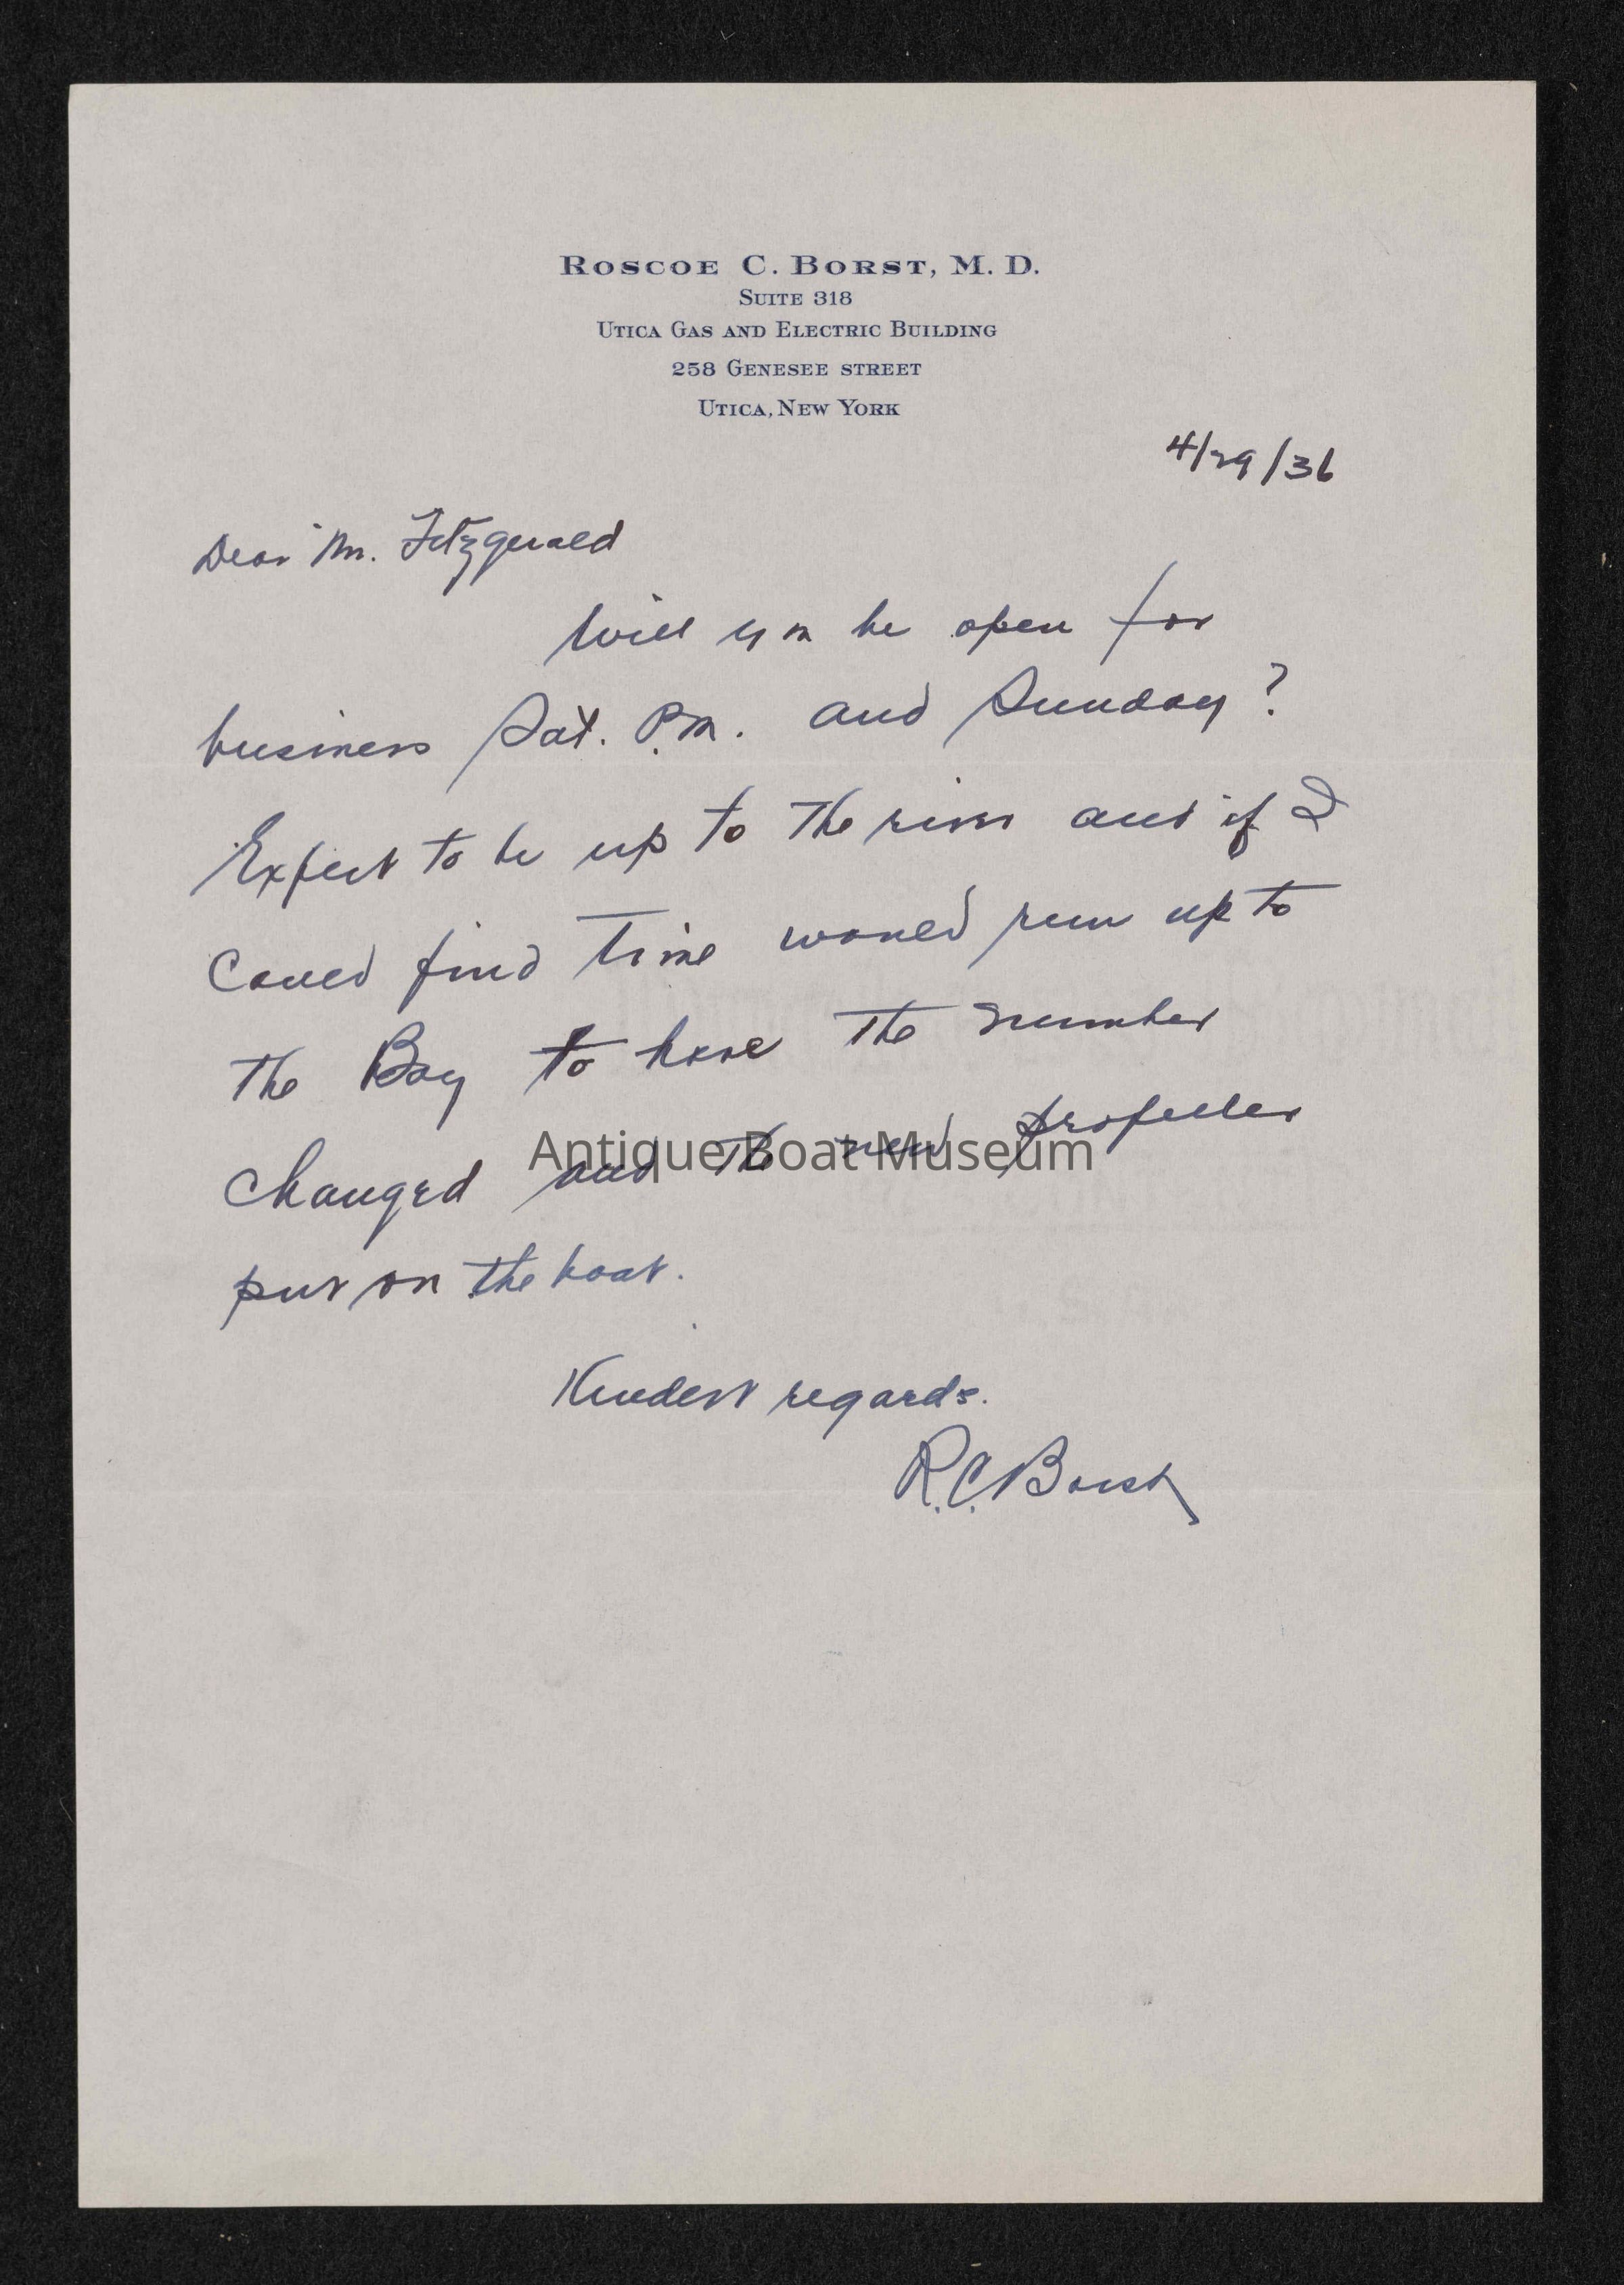 ROSCOE C. BORST, M. D.
SUITE 318
UTICA GAS AND ELECTRIC BUILDING
258 GENESEE STREET
UTICA, NEW YORK
4/29/36
Dear Mr. Fitzgerald
Will you be open for
business Sat. P.M. and Sunday?
Expect to be up to the river and if I
could find time would run up to
the Bay to have the number
changed and the new propeller
put on the boat.
Antique Boat Museum
Kindest regards.
R.C. Borst